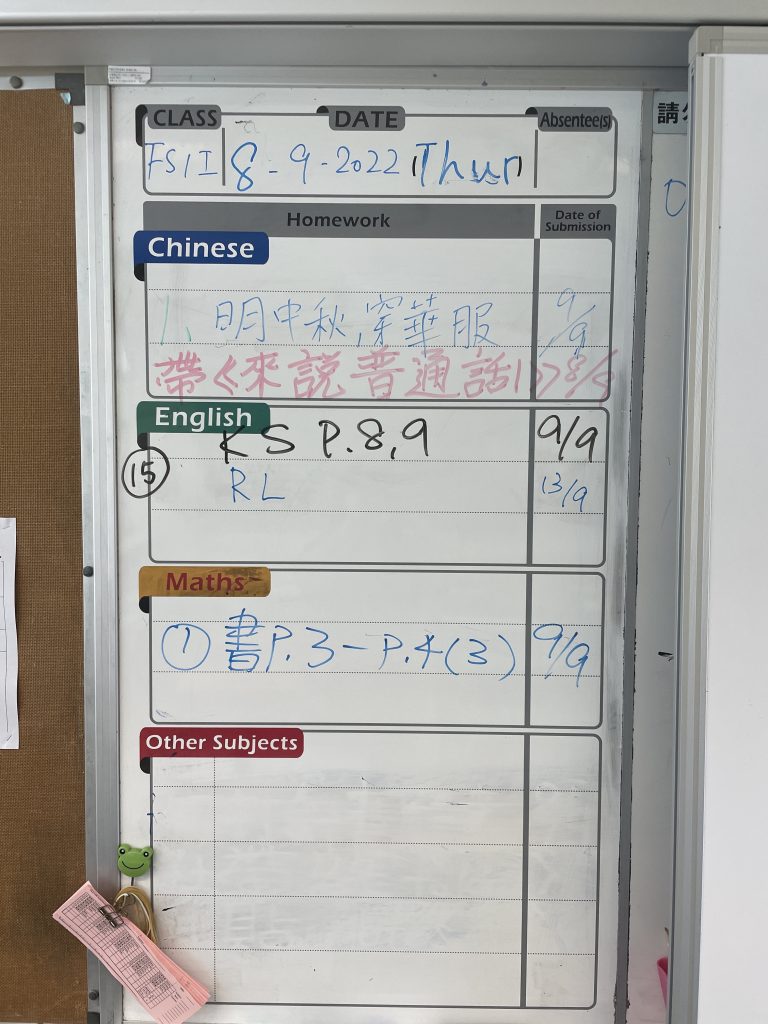 CLASS DATE Absentee(s)
FS1I 8-9-2022 (Thur)
請
Homework Date of Submission
Chinese
1. 明中秋,穿華服 9/9
帶《來說普通話1》8/9
English
KS P.8,9 9/9
15 RL 13/9
Maths
① 書P.3-P.4(3) 9/9
Other Subjects